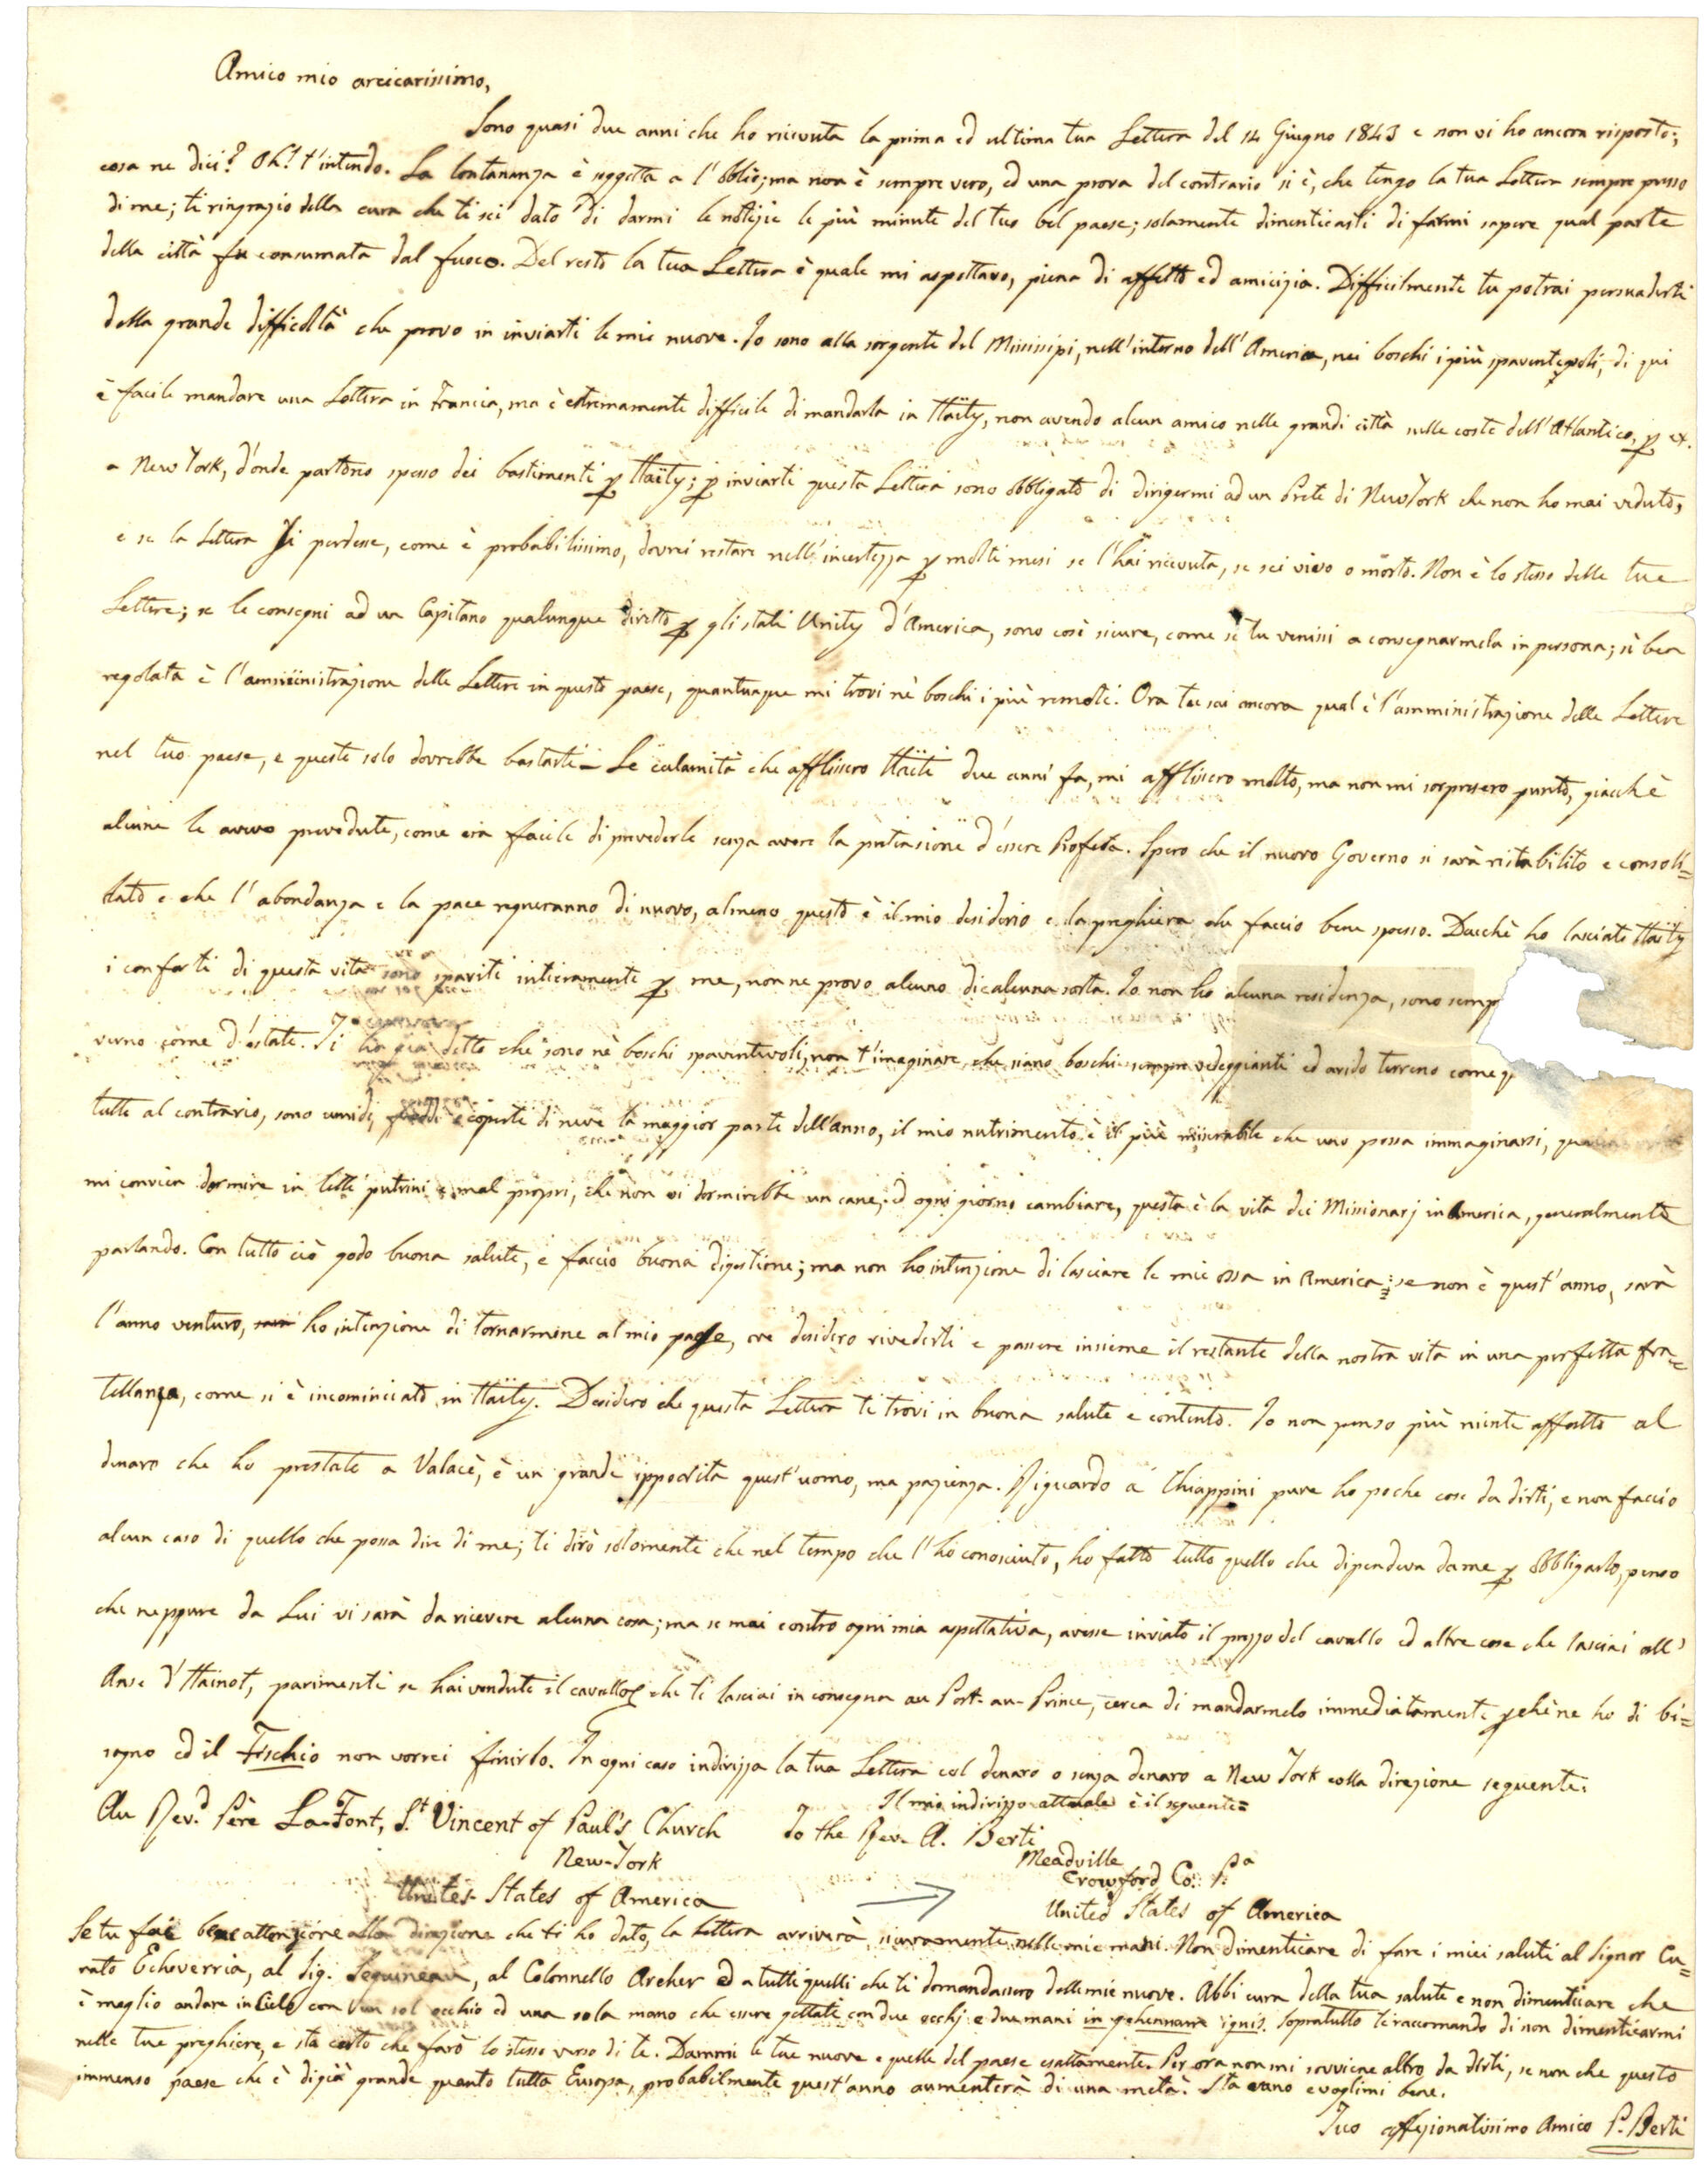 Amico mio arcicarissimo,
Sono quasi due anni che ho ricevuta la prima ed ultima tua Lettera del 14 Giugno 1843 e non vi ho ancora risposto;
cosa ne dici? Oh! t'intendo. La lontananza è soggetta a l'obblio; ma non è sempre vero, ed una prova del contrario si è, che tengo la tua Lettera sempre presso
di me; ti ringrazio della cura che ti sei dato di darmi le notizie le più minute del tuo bel paese; solamente dimenticasti di farmi sapere qual parte
della città fu consumata dal fuoco. Del resto la tua Lettera è quale mi aspettavo, piena di affetto ed amicizia. Difficilmente tu potrai persuaderti
della grande difficoltà che provo in inviarti le mie nuove. Io sono alla sorgente del Missisipi, nell'interno dell'America, nei boschi i più spaventevoli, di qui
è facile mandare una Lettera in Francia, ma è estremamente difficile di mandarla in Haïty, non avendo alcun amico nelle grandi città nelle coste dell'Atlantico, p ex.
a New York, d'onde partono spesso dei bastimenti p Haïty; p inviarti questa Lettera sono obbligato di dirigermi ad un Prete di New York che non ho mai veduto,
e se la Lettera si perdesse, come è probabilissimo, dovrei restare nell'incertezza p molti mesi se l'hai ricevuta, se sei vivo o morto. Non è lo stesso delle tue
Lettere; se le consegni ad un Capitano qualunque diretto p gli stati Unity d'America, sono così sicure, come se tu venissi a consegnarmela in persona; sì ben
regolata è l'amministrazione delle Lettere in questo paese, quantunque mi trovi nè boschi i più remoti. Ora tu sai ancora qual è l'amministrazione delle Lettere
nel tuo paese, e questo solo dovrebbe bastarti – Le calamità che afflissero Haïti due anni fa, mi afflissero molto, ma non mi sorpresero punto, giacchè
alcune le avevo prevedute, come era facile di prevederle senza avere la pretensione d'essere Profeta. Spero che il nuovo Governo si sarà ristabilito e consoli=
dato e che l'abondanza e la pace regneranno di nuovo, almeno questo è il mio desiderio e la preghiera che faccio bene spesso. Dacchè ho lasciato Haïty
i conforti di questa vita sono spariti intieramente p me, non ne provo alcuno di alcuna sorta. Io non ho alcuna residenza, sono semp
verno come d'estate. Ti ho già detto che sono nè boschi spaventevoli, non t'imaginare che siano boschi sempre verdeggianti ed arido terreno come q
tutto al contrario, sono umidi, freddi e coperti di neve la maggior parte dell'anno, il mio nutrimento è il più miserabile che uno possa immaginarsi,
mi convien dormire in letti putrini e mal propri, che non vi dormirebbe un cane, ed ogni giorno cambiare, questa è la vita dei Missionarj in America, generalmente
parlando. Con tutto ciò godo buona salute, e faccio buona digestione; ma non ho intenzione di lasciare le mie ossa in America; se non è quest'anno, sarà
l'anno venturo, ho intenzione di tornarmene al mio paese, ove desidero rivederti e passare insieme il restante della nostra vita in una perfetta fra=
tellanza, come si è incominciato in Haïty. Desidero che questa Lettera ti trovi in buona salute e contento. Io non penso più niente affatto al
denaro che ho prestato a Valacè, è un grande ippocrita quest'uomo, ma pazienza. Riguardo a Chiappini pure ho poche cose da dirti, e non faccio
alcun caso di quello che possa dire di me; ti dirò solamente che nel tempo che l'ho conosciuto, ho fatto tutto quello che dipendeva da me p obbligarlo, penso
che neppure da Lui vi sarà da ricevere alcuna cosa; ma se mai contro ogni mia aspettativa, avesse inviato il prezzo del cavallo ed altre cose che lasciai all'
Anse d'Hainot, parimenti se hai venduto il cavallo che ti lasciai in consegna au Port-au-Prince, cerca di mandarmelo immediatamente pchè ne ho di bi=
sogno ed il Fischio non vorrei finirlo. In ogni caso indirizza la tua Lettera col denaro o senza denaro a New York colla direzione seguente:
Il mio indirizzo attuale è il seguente=
Au Rev.d Père La-Font, St Vincent of Paul's Church
New-York
Unites-States of America
To the Rev. A. Berti
Meadville
Crowford Co: Pa
United States of America
Se tu fai bene attenzione alla direzione che ti ho dato, la Lettera arriverà sicuramente nelle mie mani. Non dimenticare di fare i miei saluti al Signor Cu=
rato Echeverria, al Sig. Seguineau, al Colonnello Archer ed a tutti quelli che ti domandassero delle mie nuove. Abbi cura della tua salute e non dimenticare che
è meglio andare in Cielo con un sol occhio ed una sola mano che essere gettati con due occhj e due mani in gehennam ignis. Sopratutto ti raccomando di non dimenticarmi
nelle tue preghiere, e sta certo che farò lo stesso verso di te. Dammi le tue nuove e quelle del paese esattamente. Per ora non mi sovviene altro da dirti, se non che questo
immenso paese che è digià grande quanto tutta Europa, probabilmente quest'anno aumenterà di una metà. Sta sano e voglimi bene.
Tuo affezionatissimo Amico P. Berti